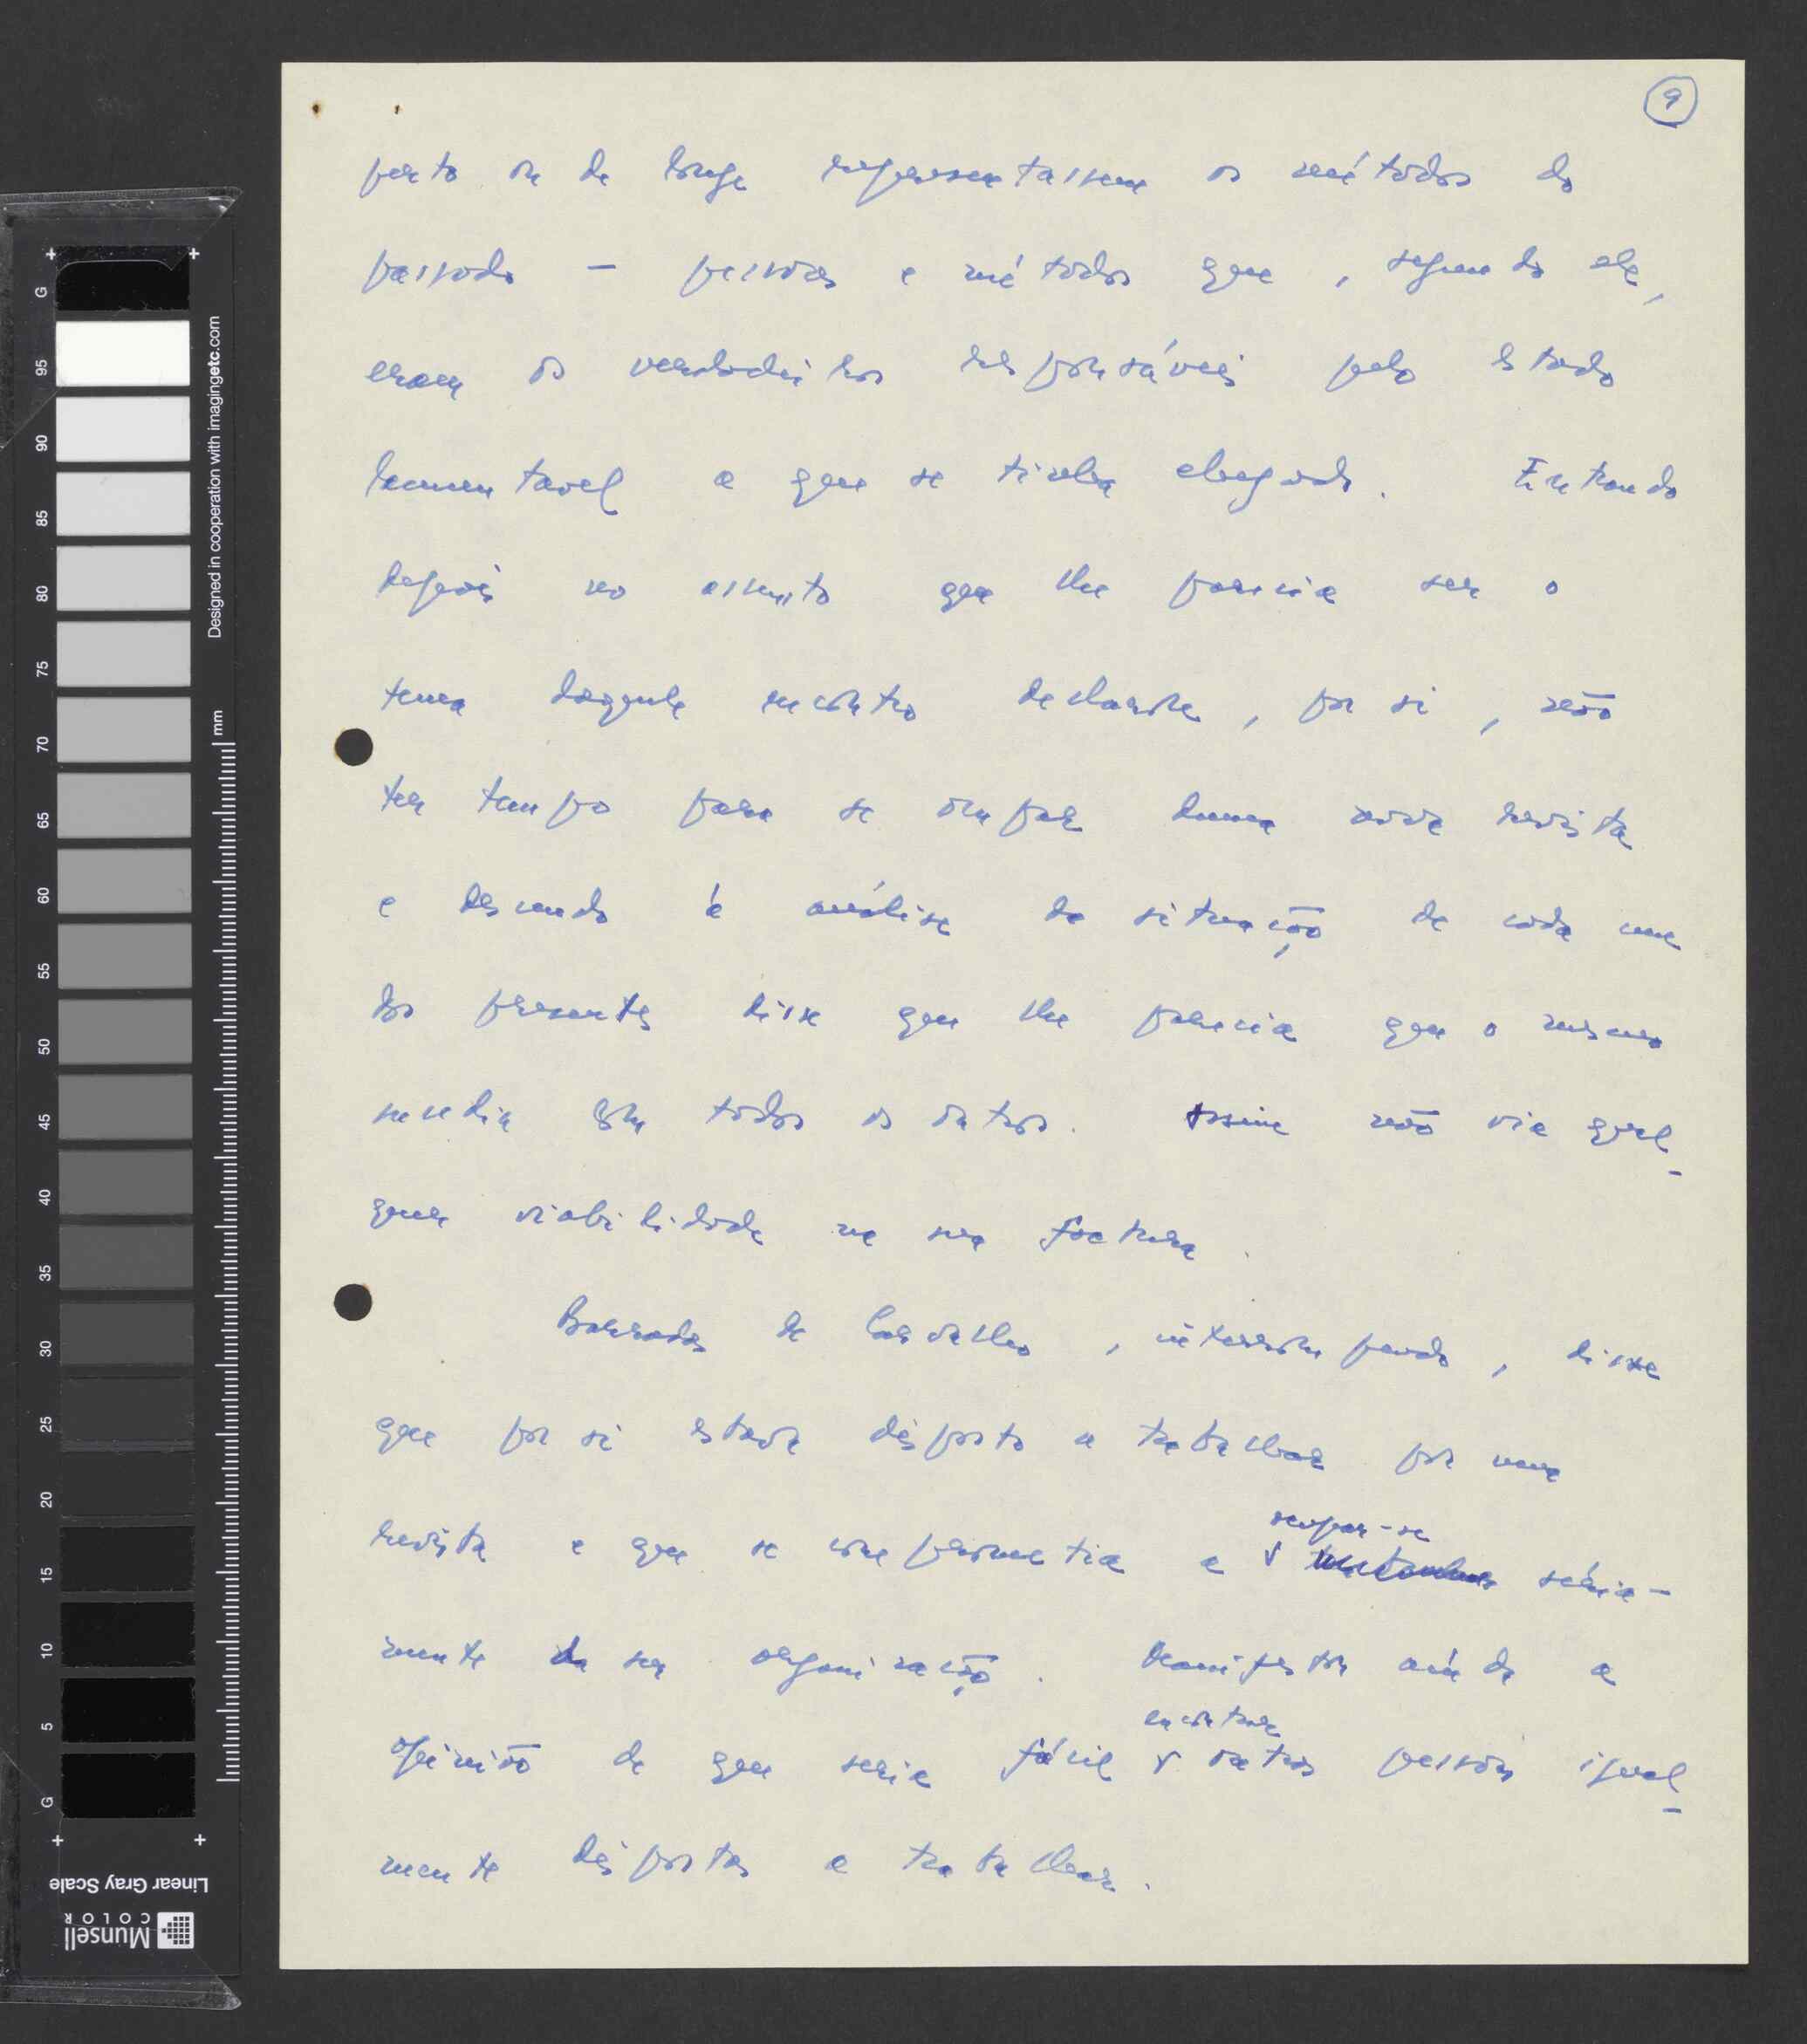 9
perto ou de longe representassem os métodos do
passado — pessoas e métodos que, segundo ele,
eram os verdadeiros responsáveis pelo estado
lamentavel a que se tinha chegado. Entrando
depois no assunto que lhe parecia ser o
tema daquele encontro declarou, por si, não
ter tempo para se ocupar duma nova revista
e descendo à análise da situação de cada um
dos presentes disse que lhe parecia que o mesmo
sucedia com todos os outros. Assim não via qual-
quer viabilidade na sua factura.
Barradas de Carvalho, interrompendo, disse
que por si estava disposto a trabalhar por uma
revista e que se comprometia a ocupar-se séria-
mente da sua organização. Manifestou ainda a
opinião de que seria fácil encontrar outras pessoas igual-
mente dispostas a trabalhar.
G 95 90 85 80 75 70 65 60 55 50 45 40 35 30 25 20 15 10 5 G
mm
Designed in cooperation with imagingetc.com
Linear Gray Scale
Munsell
COLOR